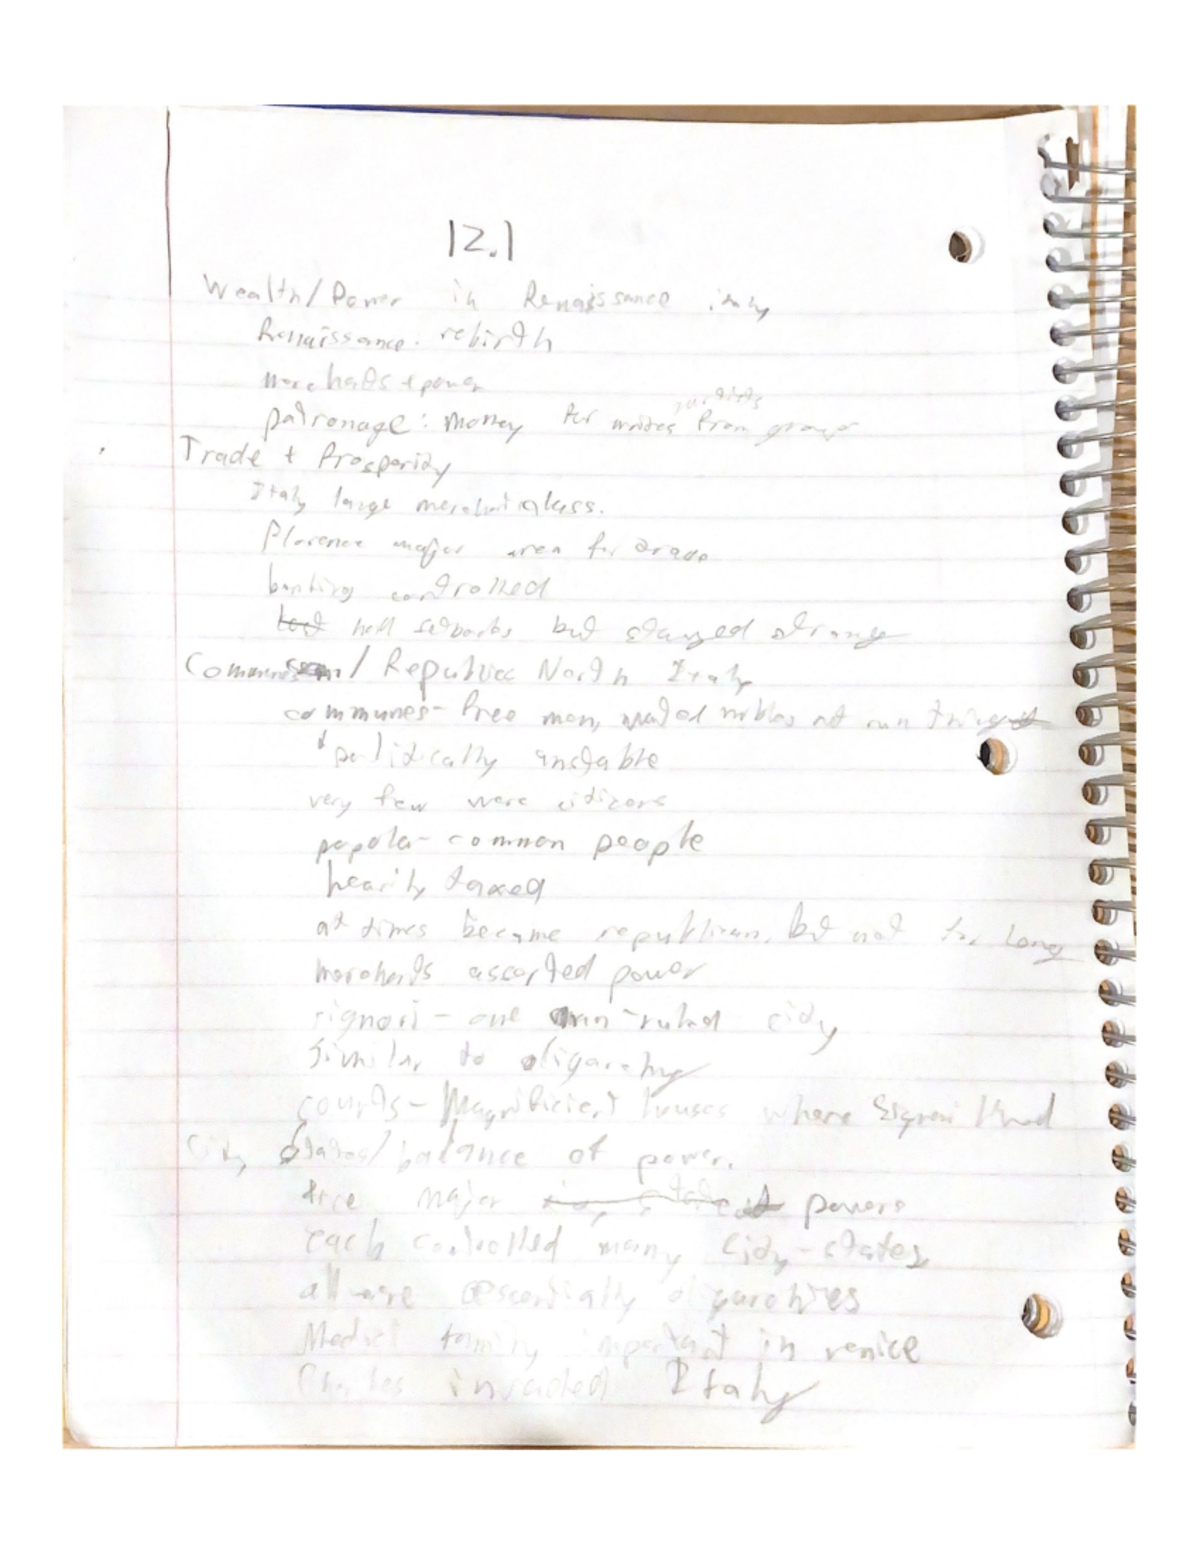 12.1
Wealth/Power in Renaissance italy
Renaissance: rebirth
merchants + power
patronage: money for writes from groups
Trade + Prosperity
Italy large merchant class.
Florence major area for trade
banking controlled
had setbacks but stayed strong
/ Republic North Italy
communes- free men, nobles run
politically unstable
very few were citizens
popolo- common people
heavily taxed
at times became republican, but not for long
merchants asserted power
signori - one man-ruled city
similar to oligarchy
courts- Magnificient houses where Signori
City states/balance of power.
major powers
each controlled many city-states,
all were essentially oligarchies
Medici family important in venice
Charles invaded Italy